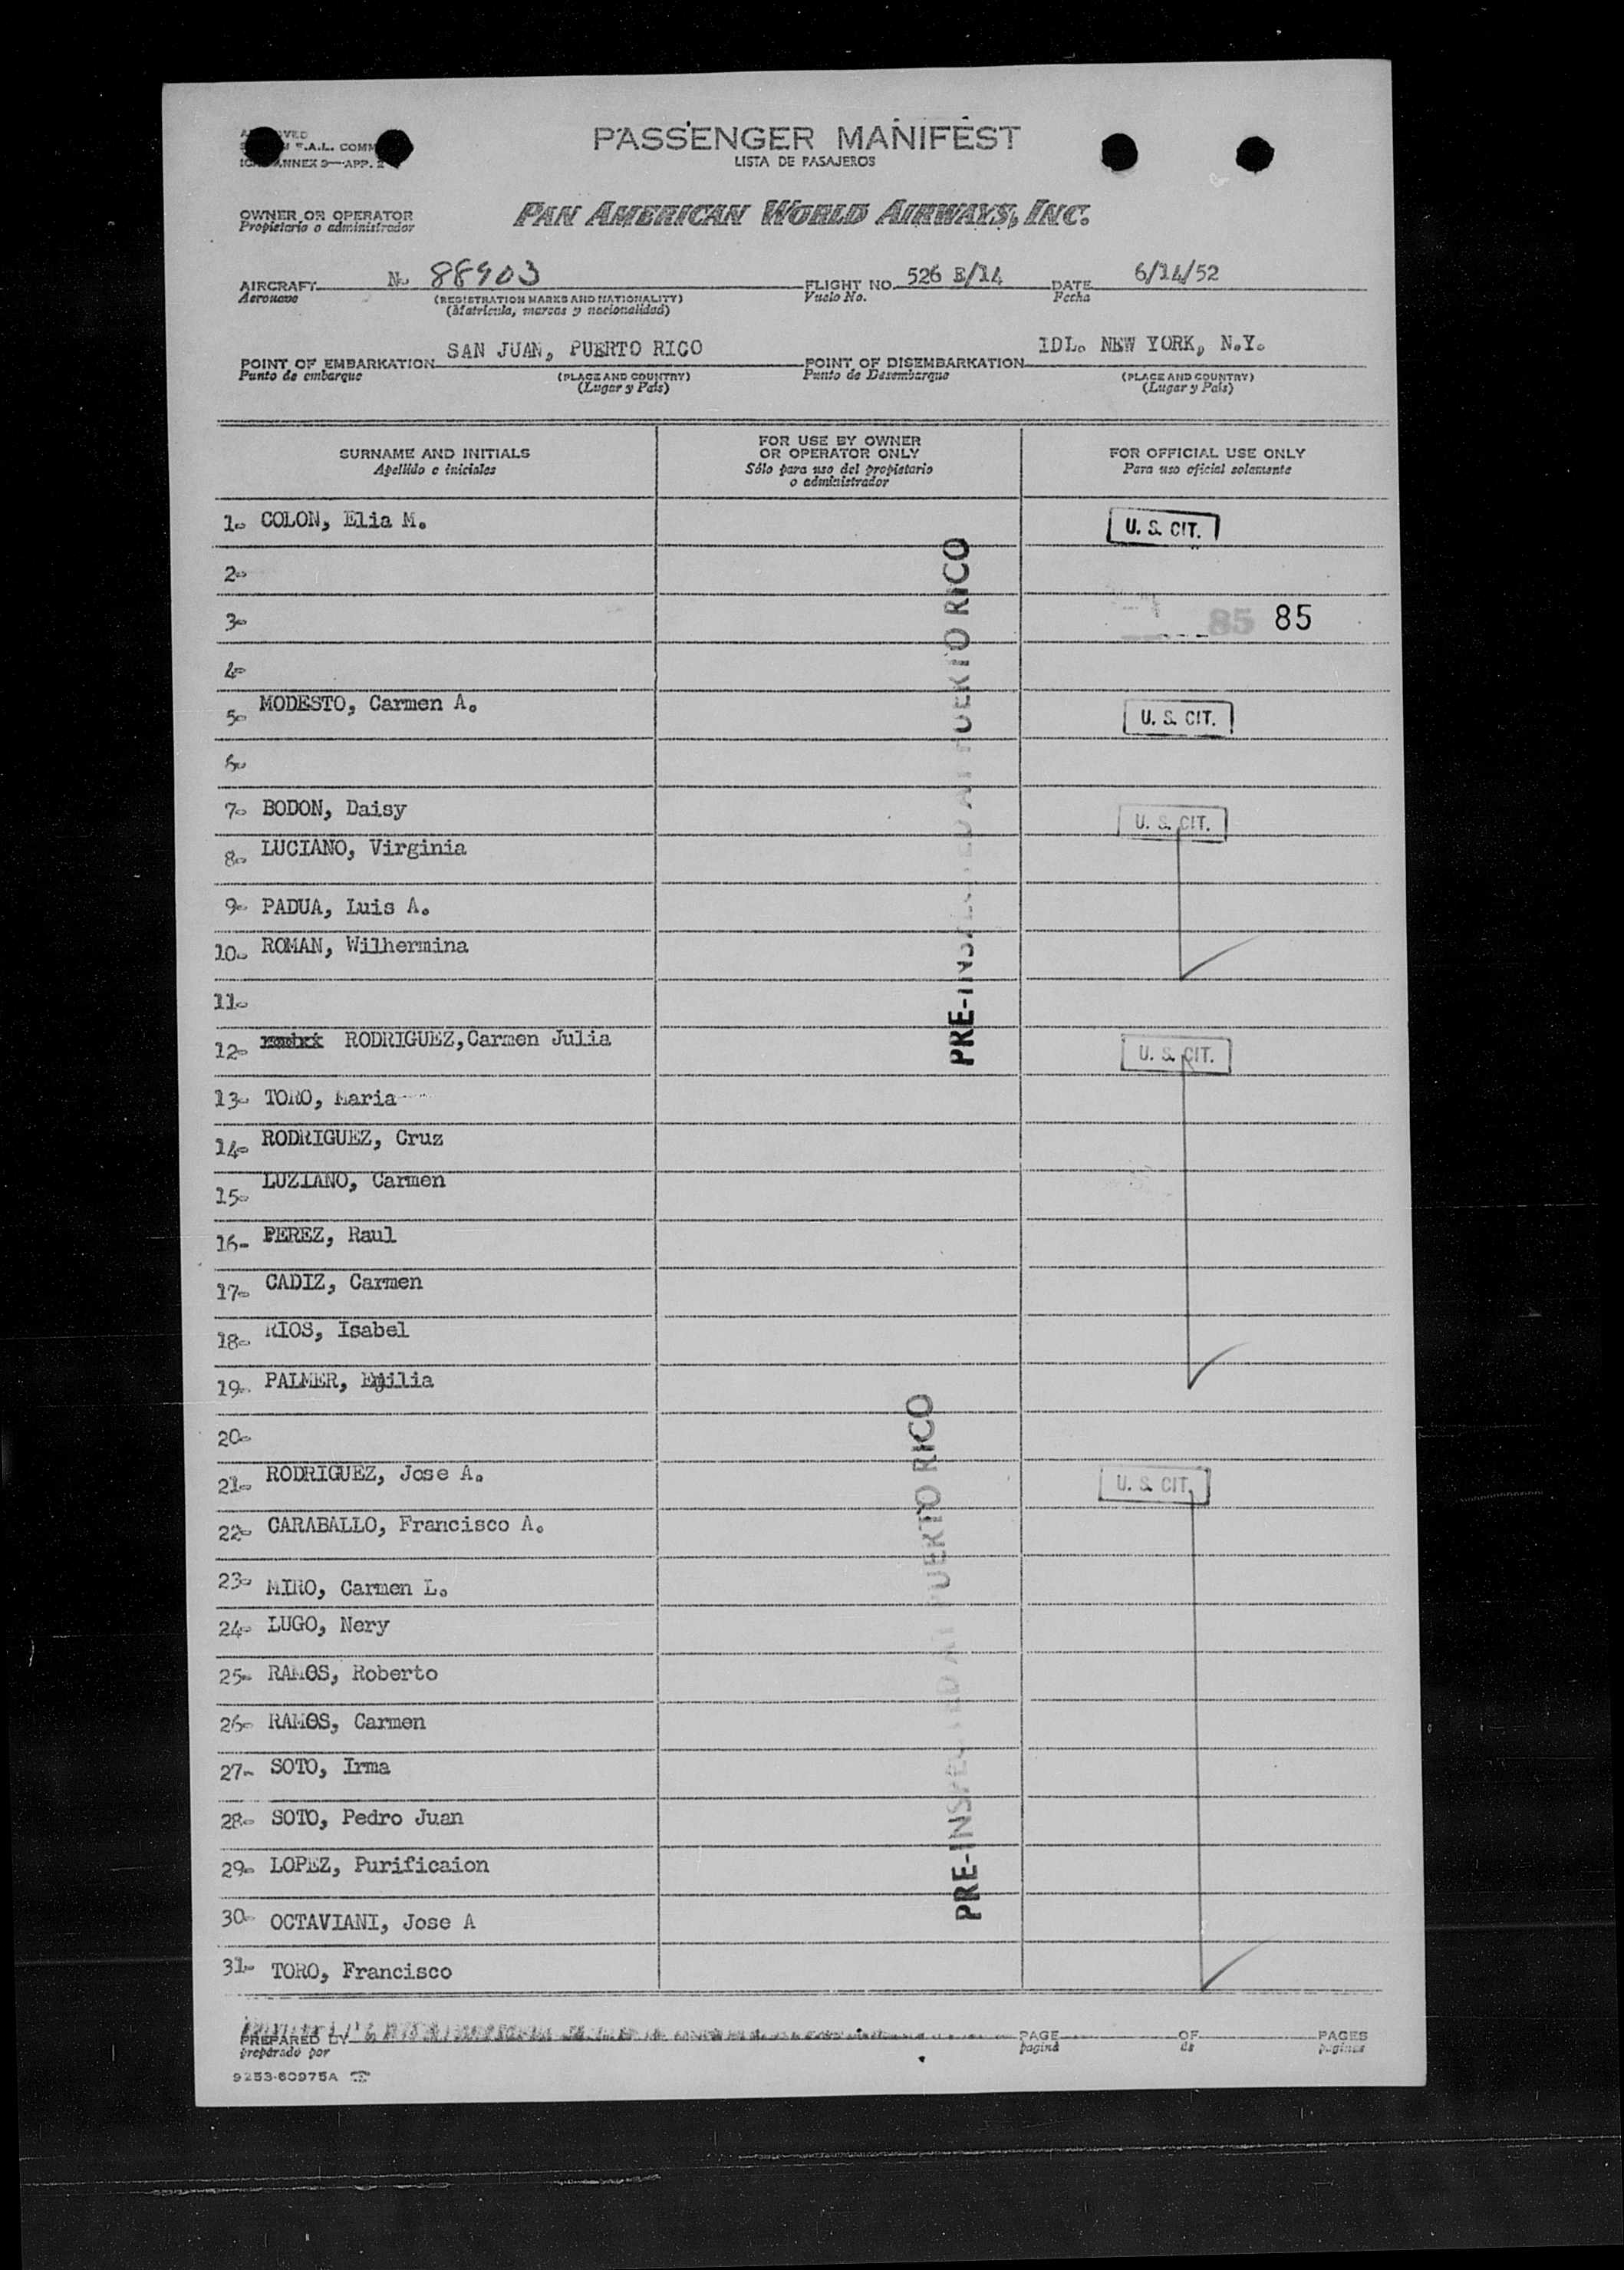 PASSENGER MANIFEST
LISTA DE PASAJEROS
F.A.L. COMM
ANNEX 9—APP.
OWNER OR OPERATOR
Propietario o administrador
PAN AMERICAN WORLD AIRWAYS, INC.
AIRCRAFT N. 88903 FLIGHT NO. 526 E/14 DATE 6/14/52
Aeronave (REGISTRATION MARKS AND NATIONALITY) Vuelo No. Fecha
(Matricula, marcas y nacionalidad)
POINT OF EMBARKATION SAN JUAN, PUERTO RICO POINT OF DISEMBARKATION IDL. NEW YORK, N.Y.
Punto de embarque (PLACE AND COUNTRY) Punto de Desembarque (PLACE AND COUNTRY)
(Lugar y País) (Lugar y País)
SURNAME AND INITIALS
Apellido e iniciales
FOR USE BY OWNER
OR OPERATOR ONLY
Sólo para uso del propietario
o administrador
FOR OFFICIAL USE ONLY
Para uso oficial solamente
1- COLON, Elia M. U. S. CIT.
2-
3- 85 85
4-
5- MODESTO, Carmen A. U. S. CIT.
6-
7- BODON, Daisy U. S. CIT.
8- LUCIANO, Virginia
9- PADUA, Luis A.
10- ROMAN, Wilhermina
11-
12- RODRIGUEZ,Carmen Julia U. S. CIT.
13- TORO, Maria
14- RODRIGUEZ, Cruz
15- LUZIANO, Carmen
16- PEREZ, Raul
17- CADIZ, Carmen
18- RIOS, Isabel
19- PALMER, Emilia
20-
21- RODRIGUEZ, Jose A. U. S. CIT.
22- CARABALLO, Francisco A.
23- MIRO, Carmen L.
24- LUGO, Nery
25- RAMOS, Roberto
26- RAMOS, Carmen
27- SOTO, Irma
28- SOTO, Pedro Juan
29- LOPEZ, Purificaion
30- OCTAVIANI, Jose A
31- TORO, Francisco
PRE-INSPECTED AT PUERTO RICO
PRE-INSPECTED AT PUERTO RICO
PREPARED BY PAGE OF PAGES
preparado por pagina de paginas
9253-60975A